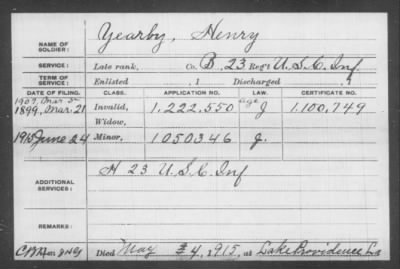 NAME OF SOLDIER: Yearby, Henry
SERVICE: Late rank, Co. B, 23 Reg't U.S.C. Inf.
TERM OF SERVICE: Enlisted , 1 Discharged , 1
DATE OF FILING. CLASS. APPLICATION NO. LAW. CERTIFICATE NO.
1907, Mar. 
1899, Mar. 21 Invalid, 1.222.550 age J 1.100.749
Widow,
1915 June 24 Minor, 1050346 J.
ADDITIONAL SERVICES: H 23 U.S.C. Inf
REMARKS:
Died May 4, 1915, at Lake Providence La